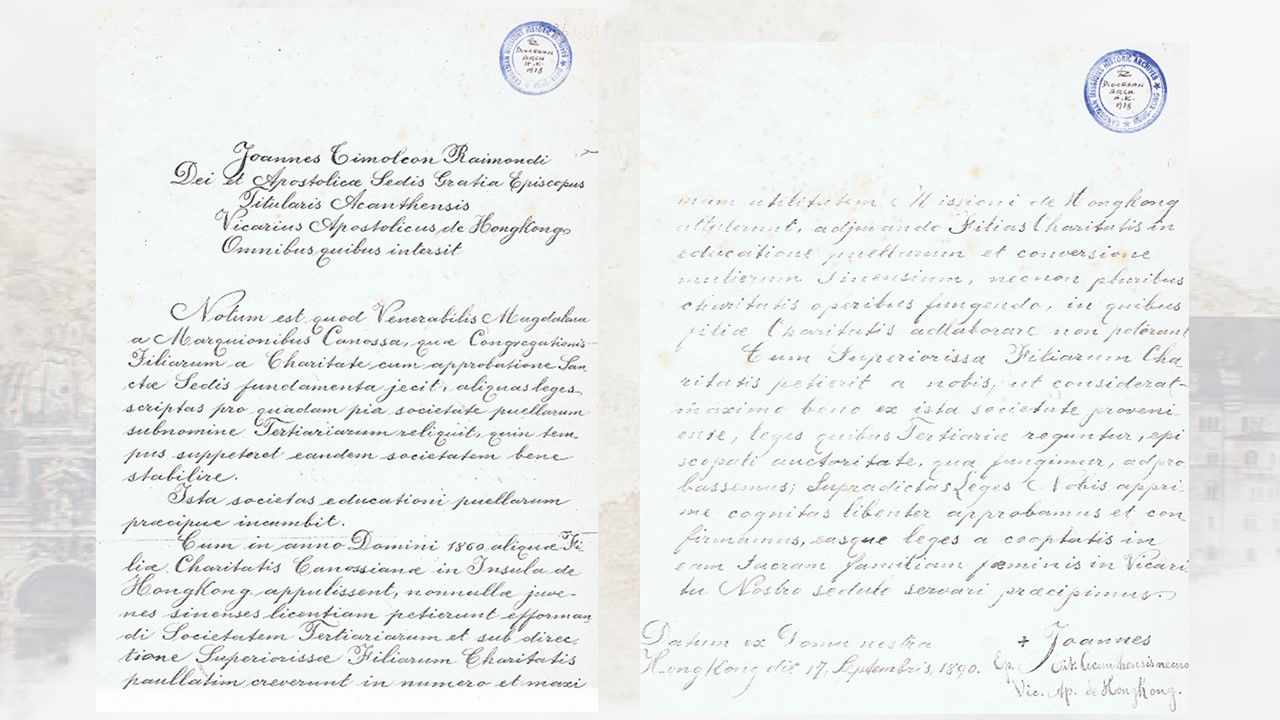 CANOSSIAN MISSIONS HISTORIC ARCHIVES
DIOCESAN
ARCH
H.K.
1978
Joannes Timoleon Raimondi
Dei et Apostolicæ Sedis Gratia Episcopus
Titularis Acanthensis
Vicarius Apostolicus de HongKong
Omnibus quibus intersit
Notum est quod Venerabilis Magdalena
a Marquionibus Canossa, quæ Congregationis
Filiarum a Charitate cum approbatione San
ctæ Sedis fundamenta jecit, aliquas leges
scriptas pro quadam pia societate puellarum
subnomine Tertiariarum reliquit, quin tem-
pus suppeteret eandem societatem bene
stabilire.
Ista societas educationi puellarum
præcipue incumbit.
Cum in anno Domini 1860 aliquæ Fi-
liæ Charitatis Canossianæ in Insula de
HongKong appulissent, nonnullæ juve-
nes sinenses licentiam petierunt efforman
di Societatem Tertiariarum et sub direc
tione Superiorissæ Filiarum Charitatis
paullatim creverunt in numero et maxi
CANOSSIAN MISSIONS HISTORIC ARCHIVES
DIOCESAN
ARCH
H.K.
1978
mam utilitatem Missioni de Hongkong
attulerunt, adjuvando Filias Charitatis in
educatione puellarum et conversione
mulierum Sinensium, necnon pluribus
charitatis operibus fungendo, in quibus
filiæ Charitatis adlaborare non poterant
Cum Superiorissa Filiarum Cha
ritatis petierit a nobis, ut considerat-
maximo bono ex ista societate proveni
ente, leges quibus Tertiariæ reguntur, epi
scopali auctoritate, qua fungimur, adpro
bassemus; Supradictas Leges Nobis appri
me cognitas libenter approbamus et con
firmamus, easque leges a cooptatis in
eam Sacram familiam fæminis in Vicari
tu Nostro sedulo servari præcipimus.
Datum ex Domu nostra
HongKong die 17, Septembris, 1890.
+ Joannes
Ep.
Vic. Ap. de HongKong.